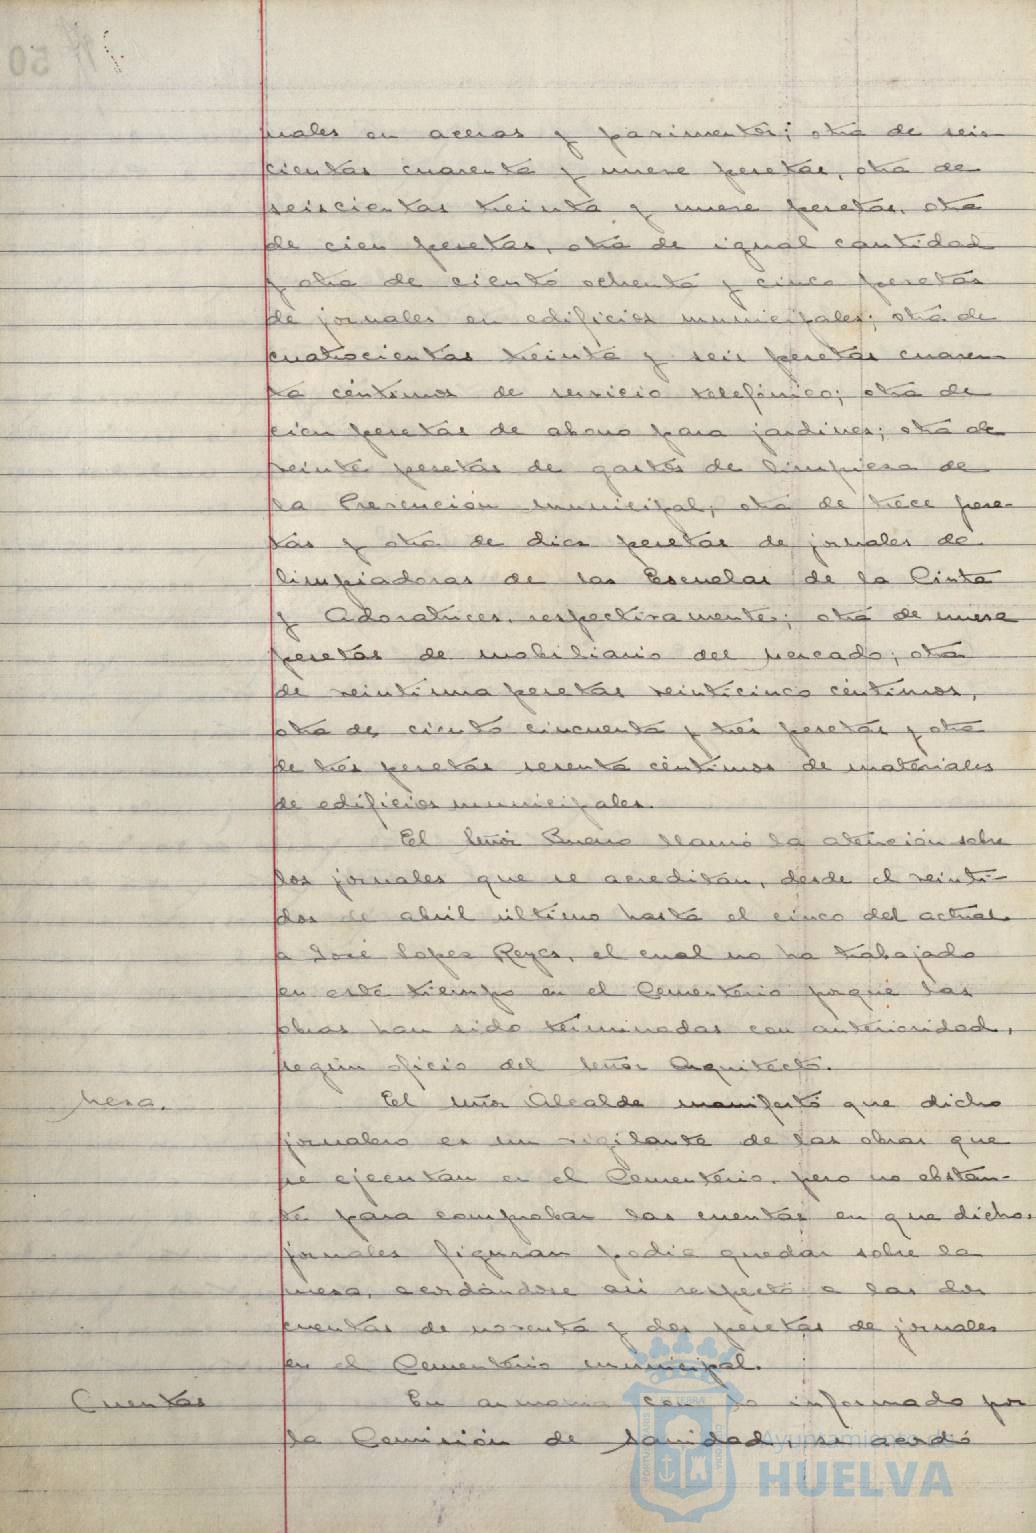 nales en aceras y pavimentos; otra de seis-
cientas cuarenta y nueve pesetas, otra de
seiscientas treinta y nueve pesetas, otra
de cien pesetas, otra de igual cantidad
y otra de ciento ochenta y cinco pesetas
de jornales en edificios municipales; otra de
cuatrocientas treinta y seis pesetas cuaren-
ta céntimos de servicio telefónico; otra de
cien pesetas de abono para jardines; otra de
veinte pesetas de gastos de limpieza de
la Prevención municipal, otra de trece pese-
tas y otra de diez pesetas de jornales de
limpiadoras de las Escuelas de la Cinta
y Adoratrices, respectivamente; otra de nueve
pesetas de mobiliario del Mercado; otra
de veintiuna pesetas veinticinco céntimos,
otra de ciento cincuenta y tres pesetas y otra
de tres pesetas sesenta céntimos de materiales
de edificios municipales.
El Señor Bueno llamó la atención sobre
los jornales que se acreditan, desde el veinti-
dos de abril último hasta el cinco del actual
a José Lopez Reyes, el cual no ha trabajado
en este tiempo en el Cementerio porque las
obras han sido terminadas con anterioridad,
según oficio del Señor Arquitecto.
Mesa.
El Señor Alcalde manifestó que dicho
jornalero es un vigilante de las obras que
se ejecutan en el Cementerio, pero no obstan-
te para comprobar las cuentas en que dichos
jornales figuran podía quedar sobre la
mesa, acordándose así respecto a las dos
cuentas de noventa y dos pesetas de jornales
en el Cementerio municipal.
Cuentas
En armonia con lo informado por
la Comisión de Sanidad, se acordó
Ayuntamiento de
HUELVA